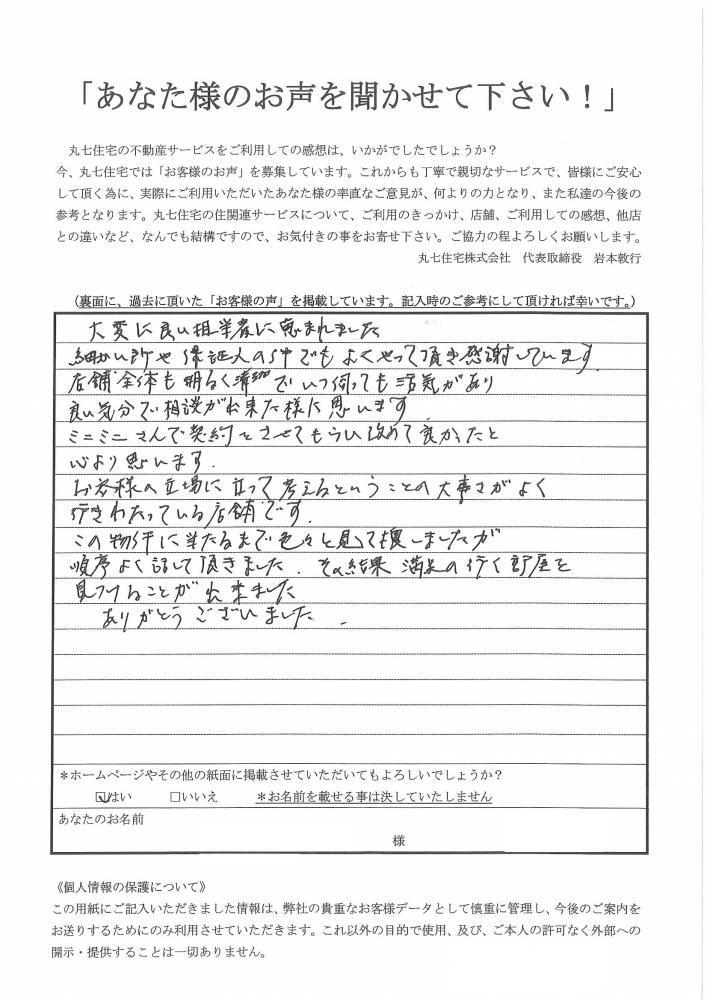 「あなた様のお声を聞かせて下さい！」
丸七住宅の不動産サービスをご利用しての感想は、いかがでしたでしょうか？
今、丸七住宅では「お客様のお声」を募集しています。これからも丁寧で親切なサービスで、皆様にご安心
して頂く為に、実際にご利用いただいたあなた様の率直なご意見が、何よりの力となり、また私達の今後の
参考となります。丸七住宅の住関連サービスについて、ご利用のきっかけ、店舗、ご利用しての感想、他店
との違いなど、なんでも結構ですので、お気付きの事をお寄せ下さい。ご協力の程よろしくお願いします。
丸七住宅株式会社　代表取締役　岩本敦行
（裏面に、過去に頂いた「お客様の声」を掲載しています。記入時のご参考にして頂ければ幸いです。）
大変に良い担当者に恵まれました
細かい所や保証人の件でもよくやって頂き感謝しています.
店舗全体も明るく清潔でいつ伺っても活気があり
良い気分で相談が出来た様に思います.
ミニミニさんで契約をさせてもらい改めて良かったと
心より思います.
お客様の立場に立って考えるということの大事さがよく
行きわたっている店舗です.
この物件に当たるまで色々と見て探しましたが
順序よく話して頂きました. その結果 満足の行く部屋を
見つけることが出来ました
ありがとうございました.
＊ホームページやその他の紙面に掲載させていただいてもよろしいでしょうか？
☑はい　□いいえ　＊お名前を載せる事は決していたしません
あなたのお名前
様
《個人情報の保護について》
この用紙にご記入いただきました情報は、弊社の貴重なお客様データとして慎重に管理し、今後のご案内を
お送りするためにのみ利用させていただきます。これ以外の目的で使用、及び、ご本人の許可なく外部への
開示・提供することは一切ありません。